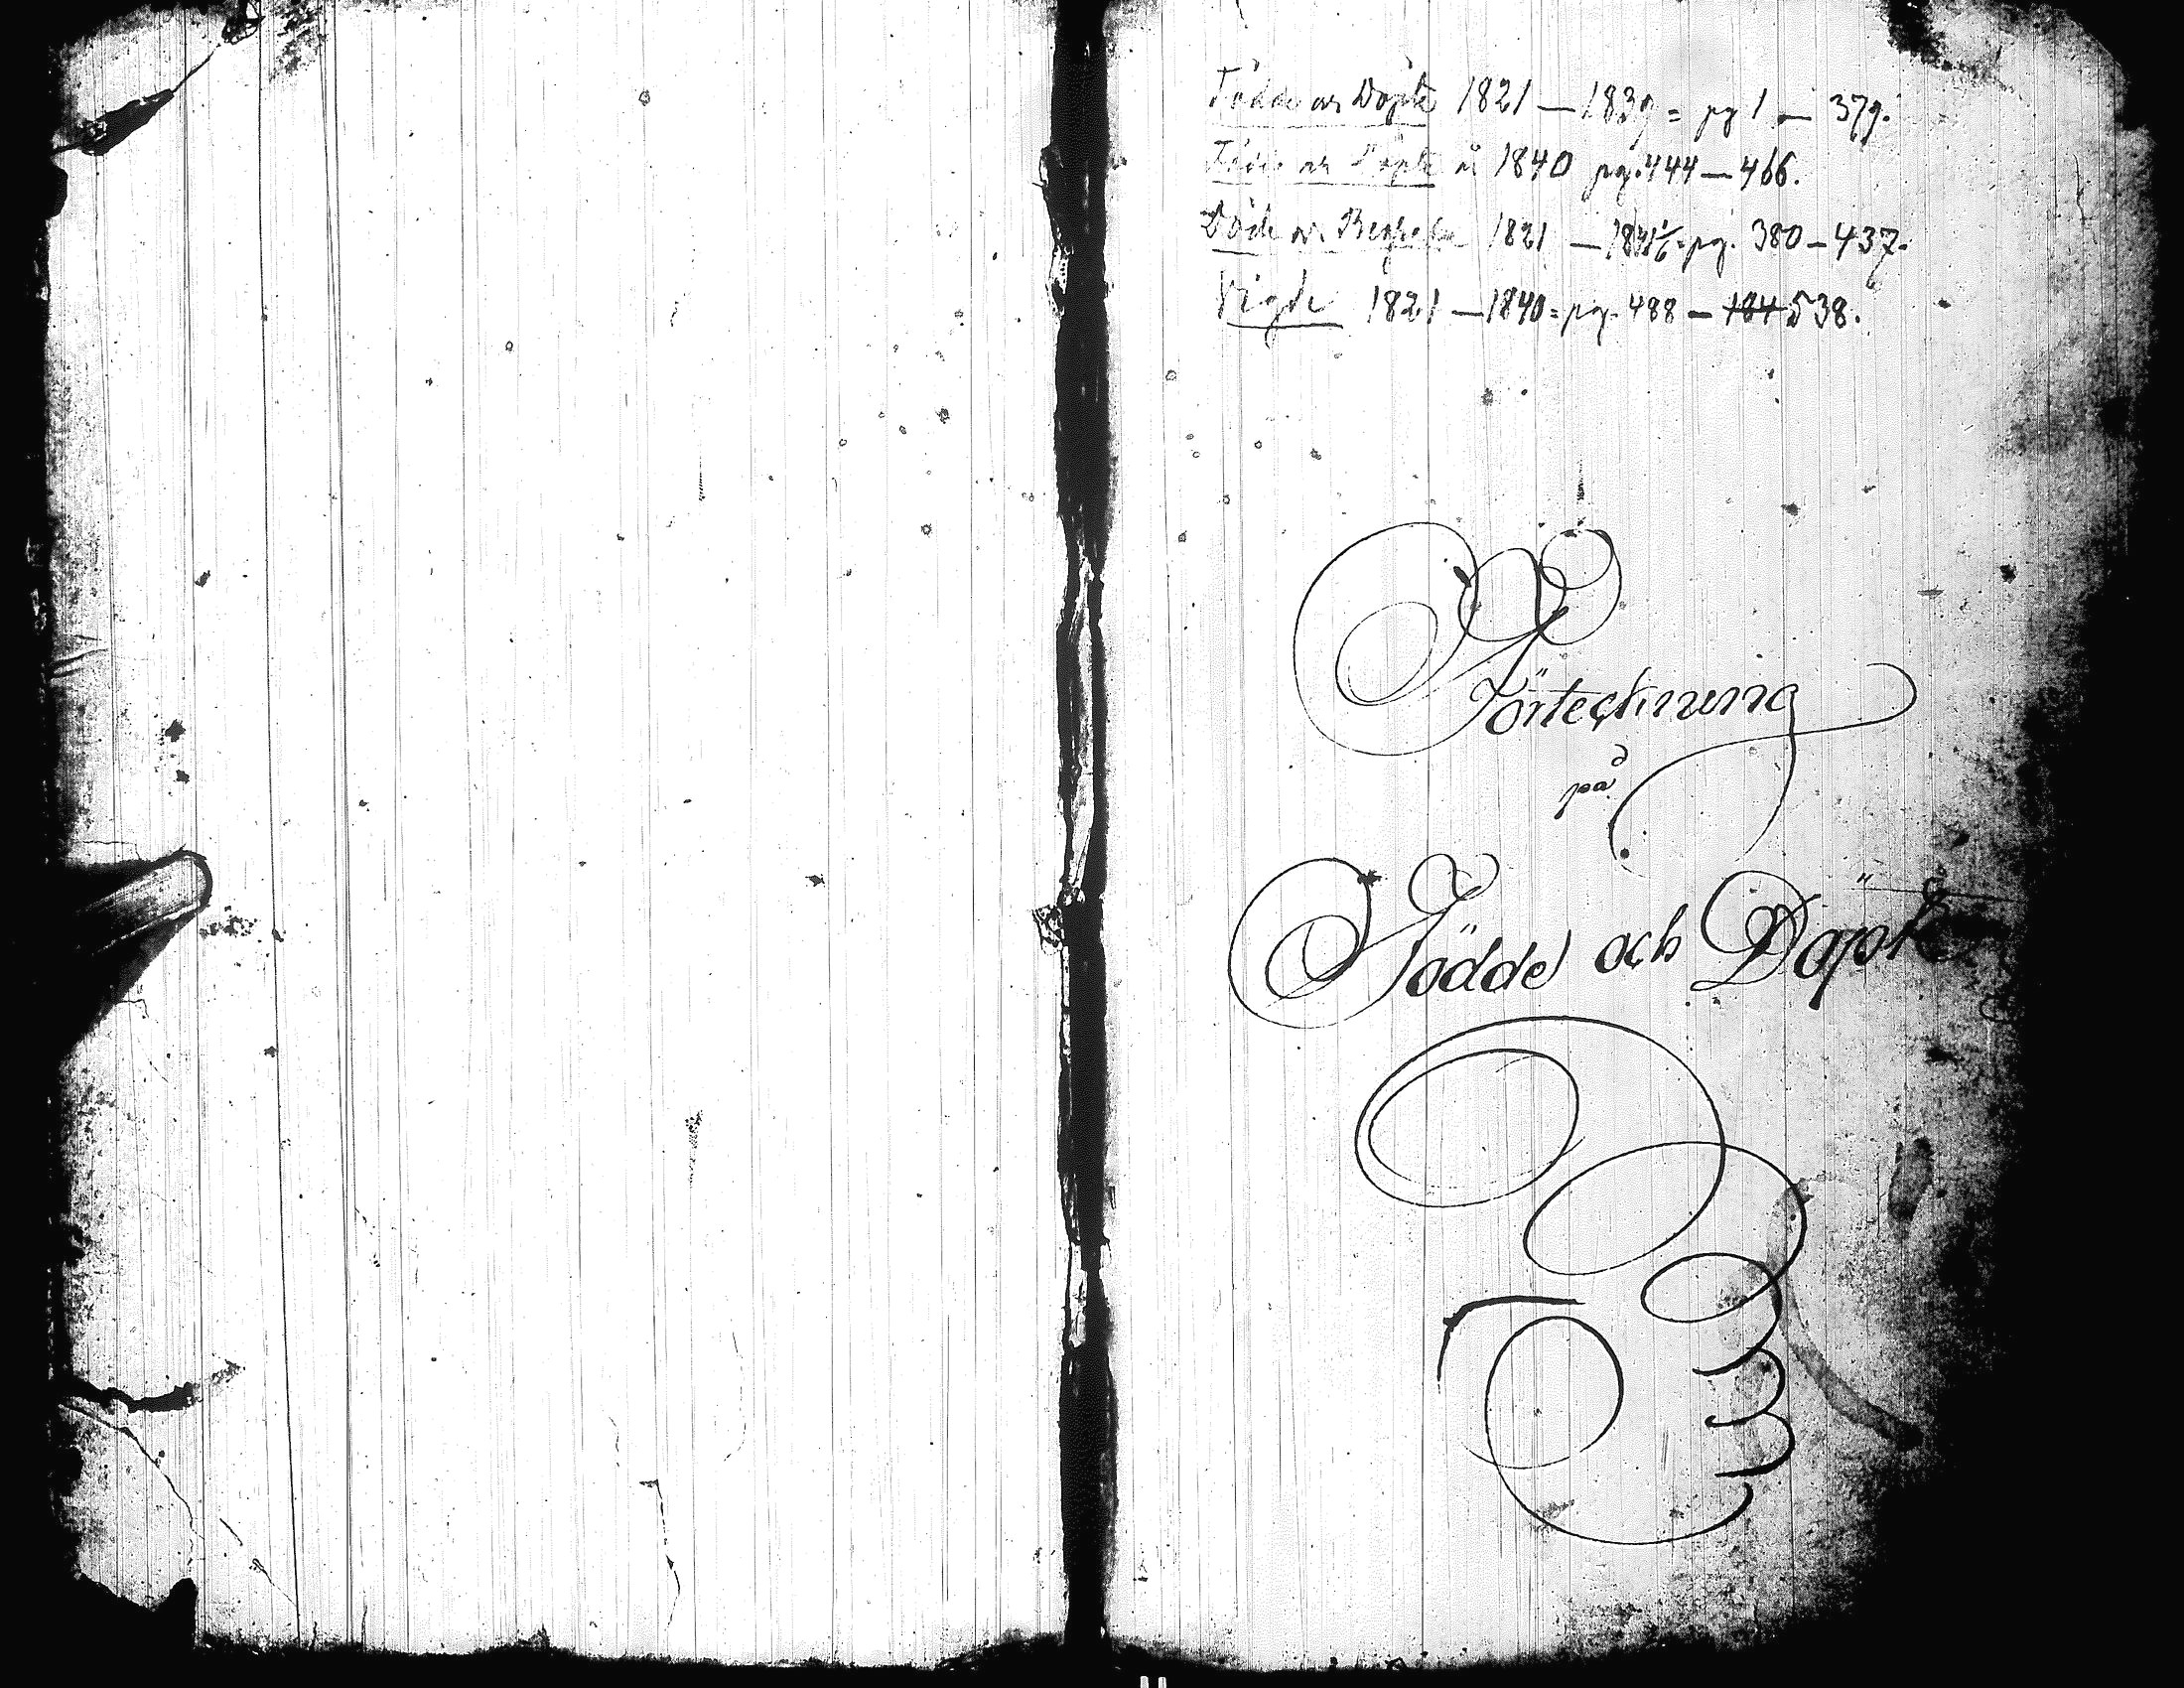 Födde och Döpte 1821 — 1839 = pg 1 — 379.
Födde och Döpte år 1840 pg. 444 — 466.
Döde och Begrafne 1821 — pg. 380 — 437.
Vigde 1821 — 1840 = pg. 488 — 538.
Förteckning
på
Födde och Döpte